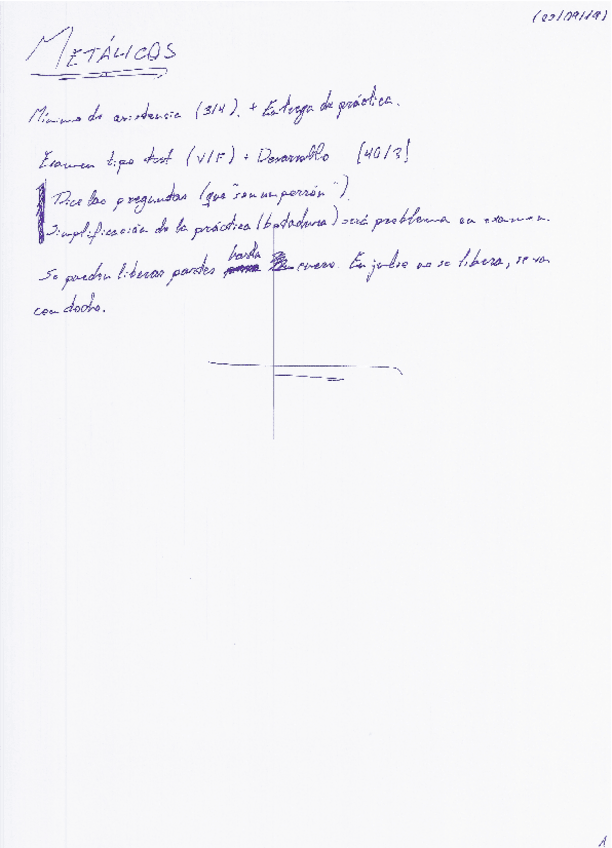 METÁLICOS
Mínimo de asistencia (3/4). + Entrega de práctica.
Examen tipo test (V/F) + Desarrollo [40/3]
Dice las preguntas (que "son un porrón").
Simplificación de la práctica (botadura) será problema en examen.
Se pueden liberar partes hasta enero. En julio no se libera, se va
con todo.